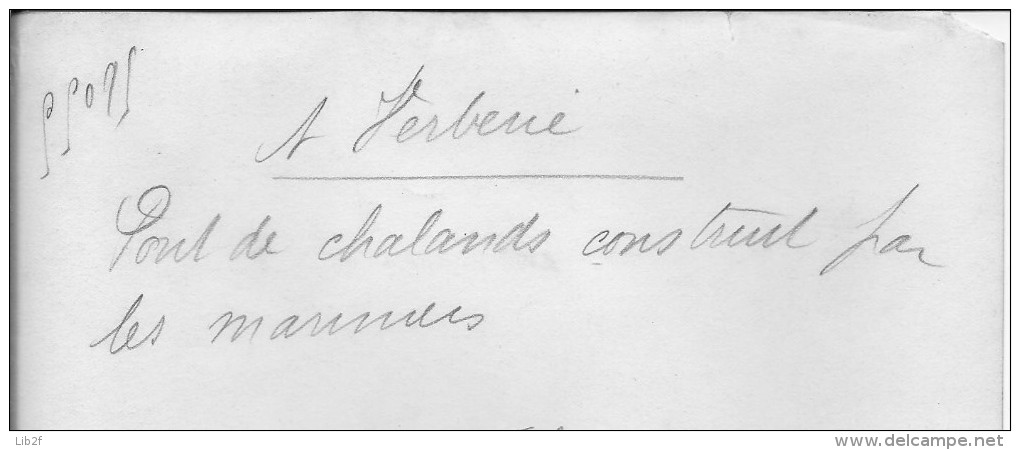 A Verberie
Pont de chalands construit par
les mariniers
Lib2f
www.delcampe.net